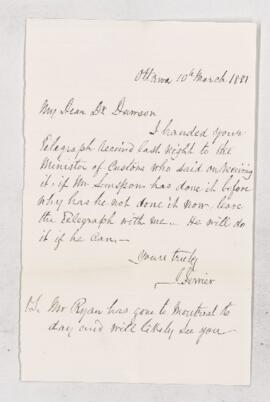 Ottawa 10th March 1881
My Dear Dr Dawson
I handed your
Telegraph received last night to the
Minister of Customs who said on receiving
it, if Mr Simpson has done it before
why has he not done it now. leave
the Telegraph with me — He will do
it if he can, —
Yours truly
J Ferrier
P.S. Mr Ryan has gone to Montreal to
day and will likely see you —